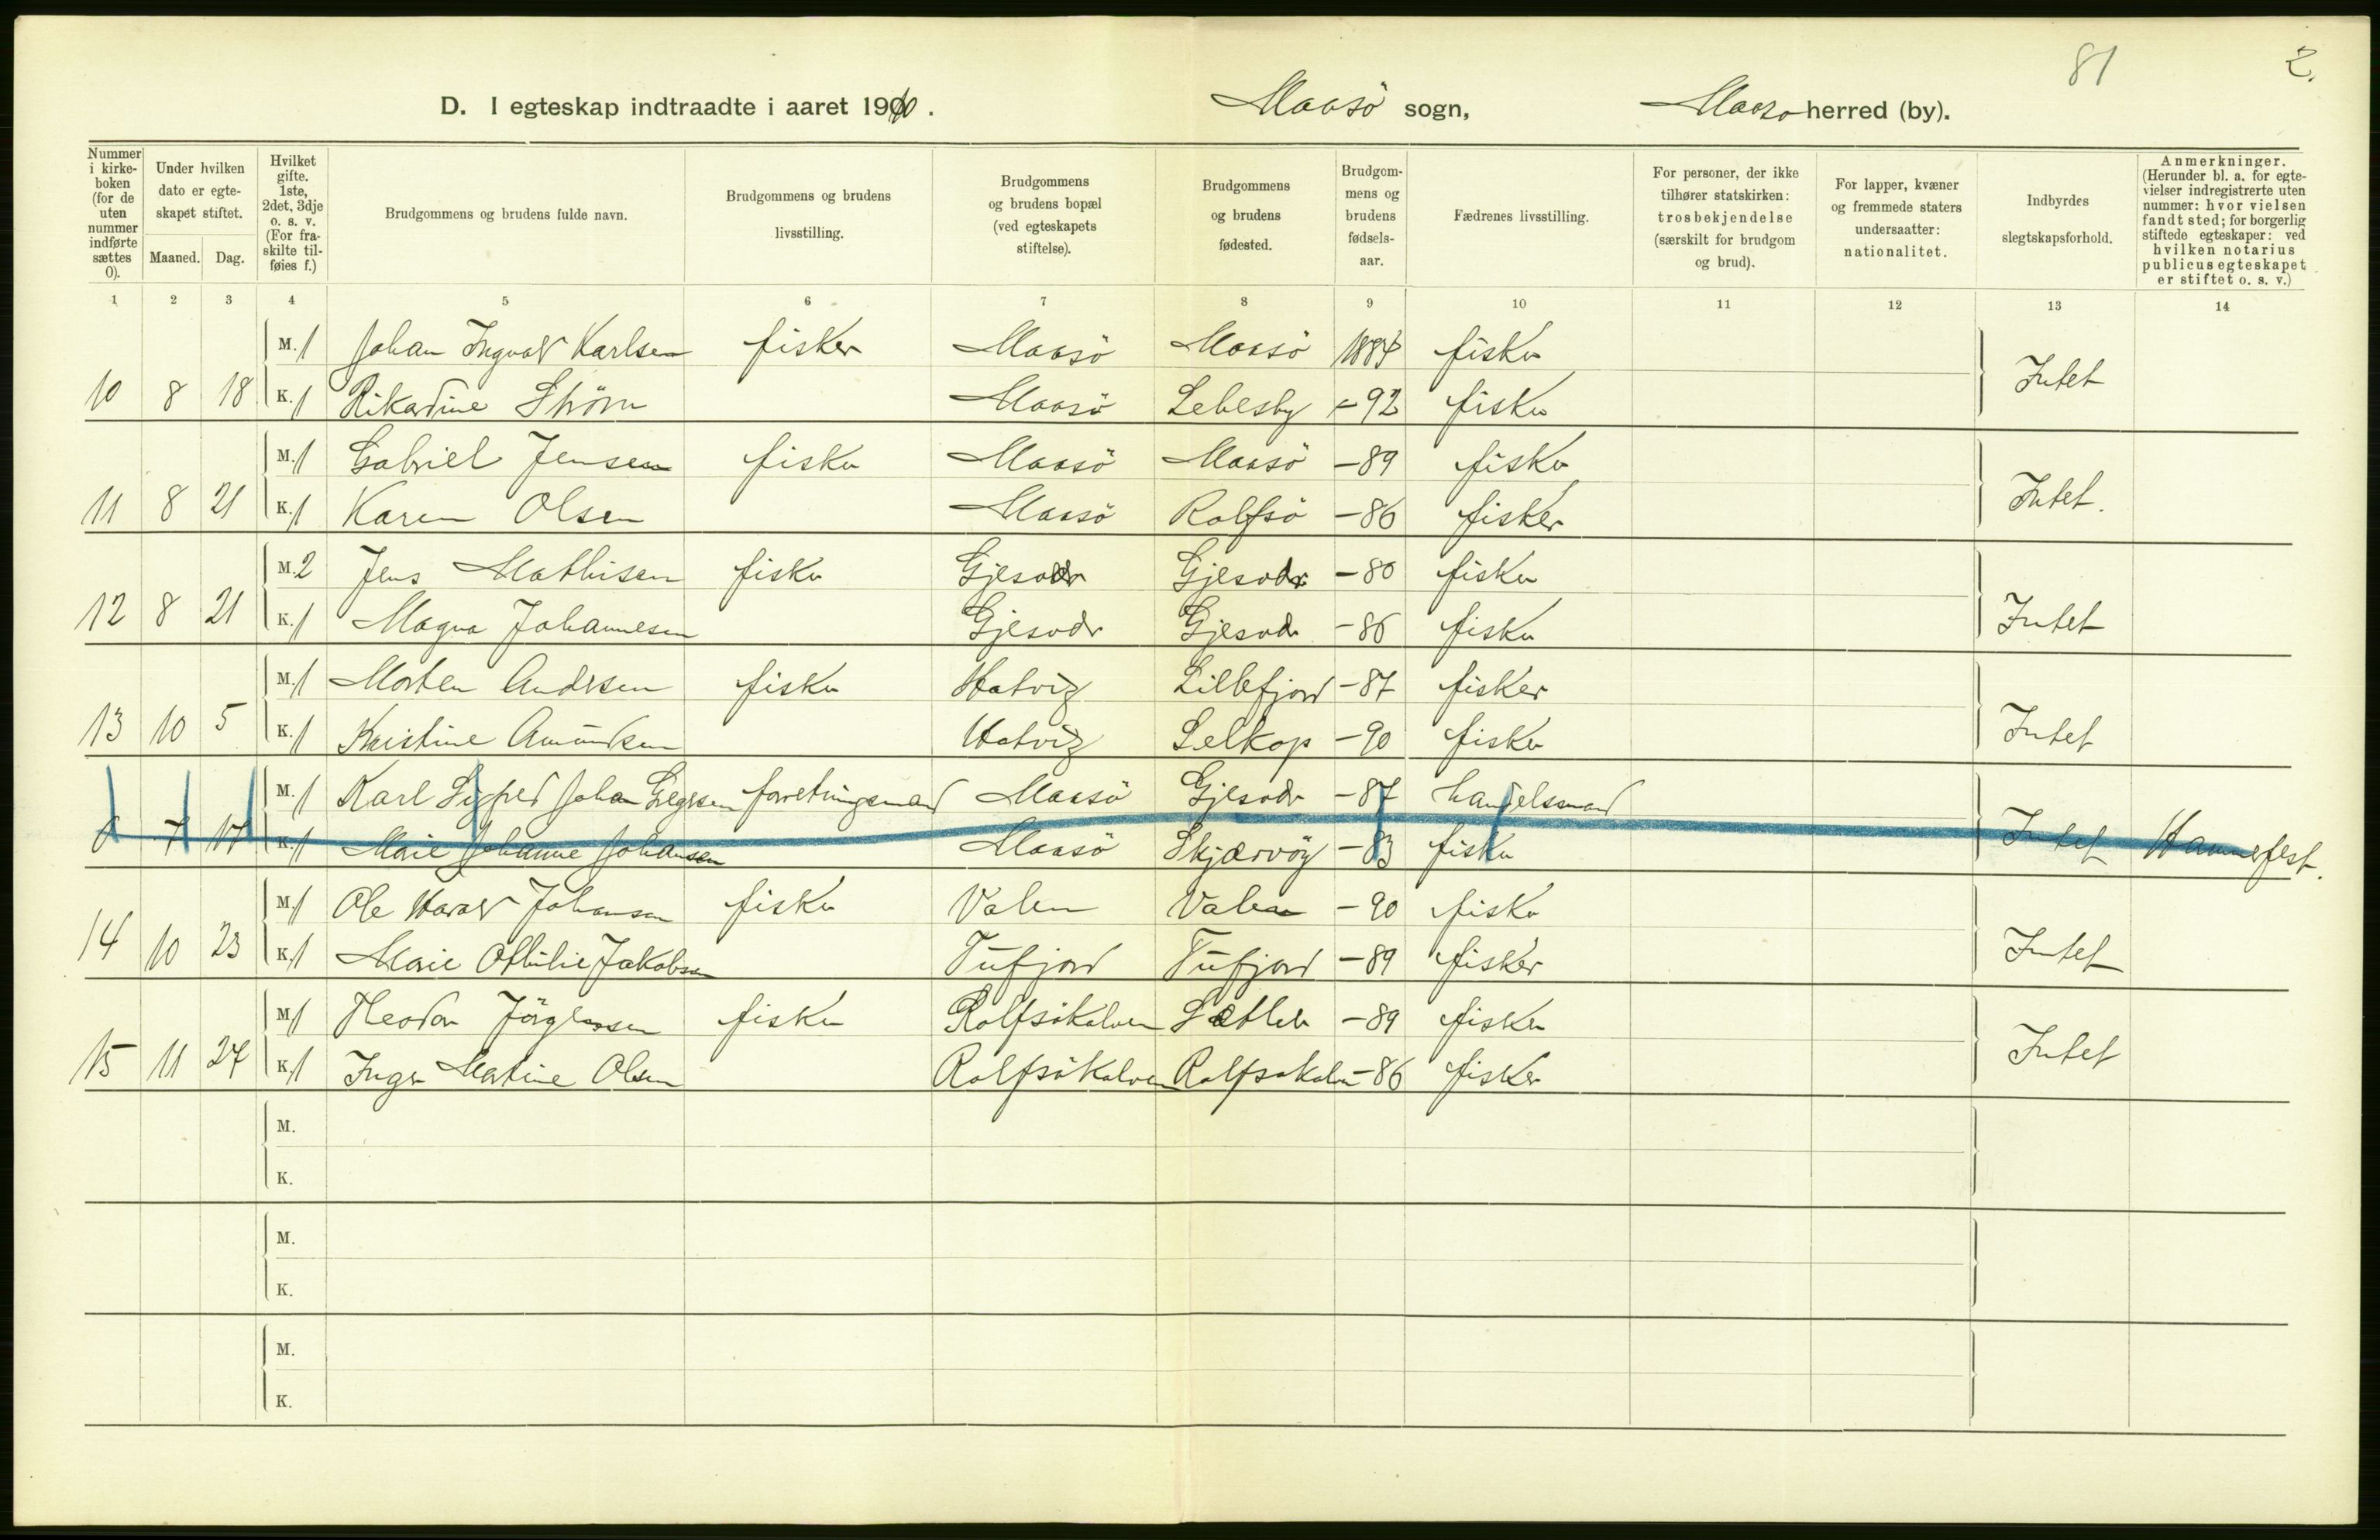 81
2.
D. I egteskap indtraadte i aaret 1910. Maasö sogn, Maasö herred (by).
Nummer i kirke-boken (for de uten nummer indførte sættes 0).
Under hvilken dato er egte-skapet stiftet.
Maaned. Dag.
Hvilket gifte. 1ste, 2det, 3dje o. s. v. (For fra-skilte til-føies f.)
Brudgommens og brudens fulde navn.
Brudgommens og brudens livsstilling.
Brudgommens og brudens bopæl (ved egteskapets stiftelse).
Brudgommens og brudens fødested.
Brudgom-mens og brudens fødsels-aar.
Fædrenes livsstilling.
For personer, der ikke tilhører statskirken: trosbekjendelse (særskilt for brudgom og brud).
For lapper, kvæner og fremmede staters undersaatter: nationalitet.
Indbyrdes slegtskapsforhold.
Anmerkninger. (Herunder bl. a. for egte-vielser indregistrerte uten nummer: hvor vielsen fandt sted; for borgerlig stiftede egteskaper: ved hvilken notarius publicus egteskapet er stiftet o. s. v.)
1 2 3 4 5 6 7 8 9 10 11 12 13 14
M. 1 Johan Ingvald Karlsen fisker Maasö Maasö 1884 fisker
10 8 18 K. 1 Rikardine Ström Maasö Lebesby -92 fisker Intet
M. 1 Gabriel Jensen fisker Maasö Maasö -89 fisker
11 8 21 K. 1 Karen Olsen Maasö Rolfsö -86 fisker Intet.
M. 2 Jens Mathisen fisker Gjesvær Gjesvær -80 fisker
12 8 21 K. 1 Magna Johannesen Gjesvær Gjesvær -86 fisker Intet
M. 1 Morten Andersen fisker Hatvig Lillefjord -87 fisker
13 10 5 K. 1 Kristine Amundsen Hatvig Selkop -90 fisker Intet
M. 1 Karl Sigfred Johan Gregersen forretningsmand Maasö Gjesvær -87 handelsmand
0 7 17 K. 1 Marie Johanne Johansen Maasö Skjærvöy -83 fisker Intet Hammerfest.
M. 1 Ole Harald Johansen fisker Valen Valen -90 fisker
14 10 23 K. 1 Marie Othilie Jakobsen Tufjord Tufjord -89 fisker Intet
M. 1 Theodor Jörgensen fisker Rolfsökalven -89 fisker
15 11 27 K. 1 Inger Martine Olsen Rolfsökalven Rolfsökalven -86 fisker Intet
M.
K.
M.
K.
M.
K.